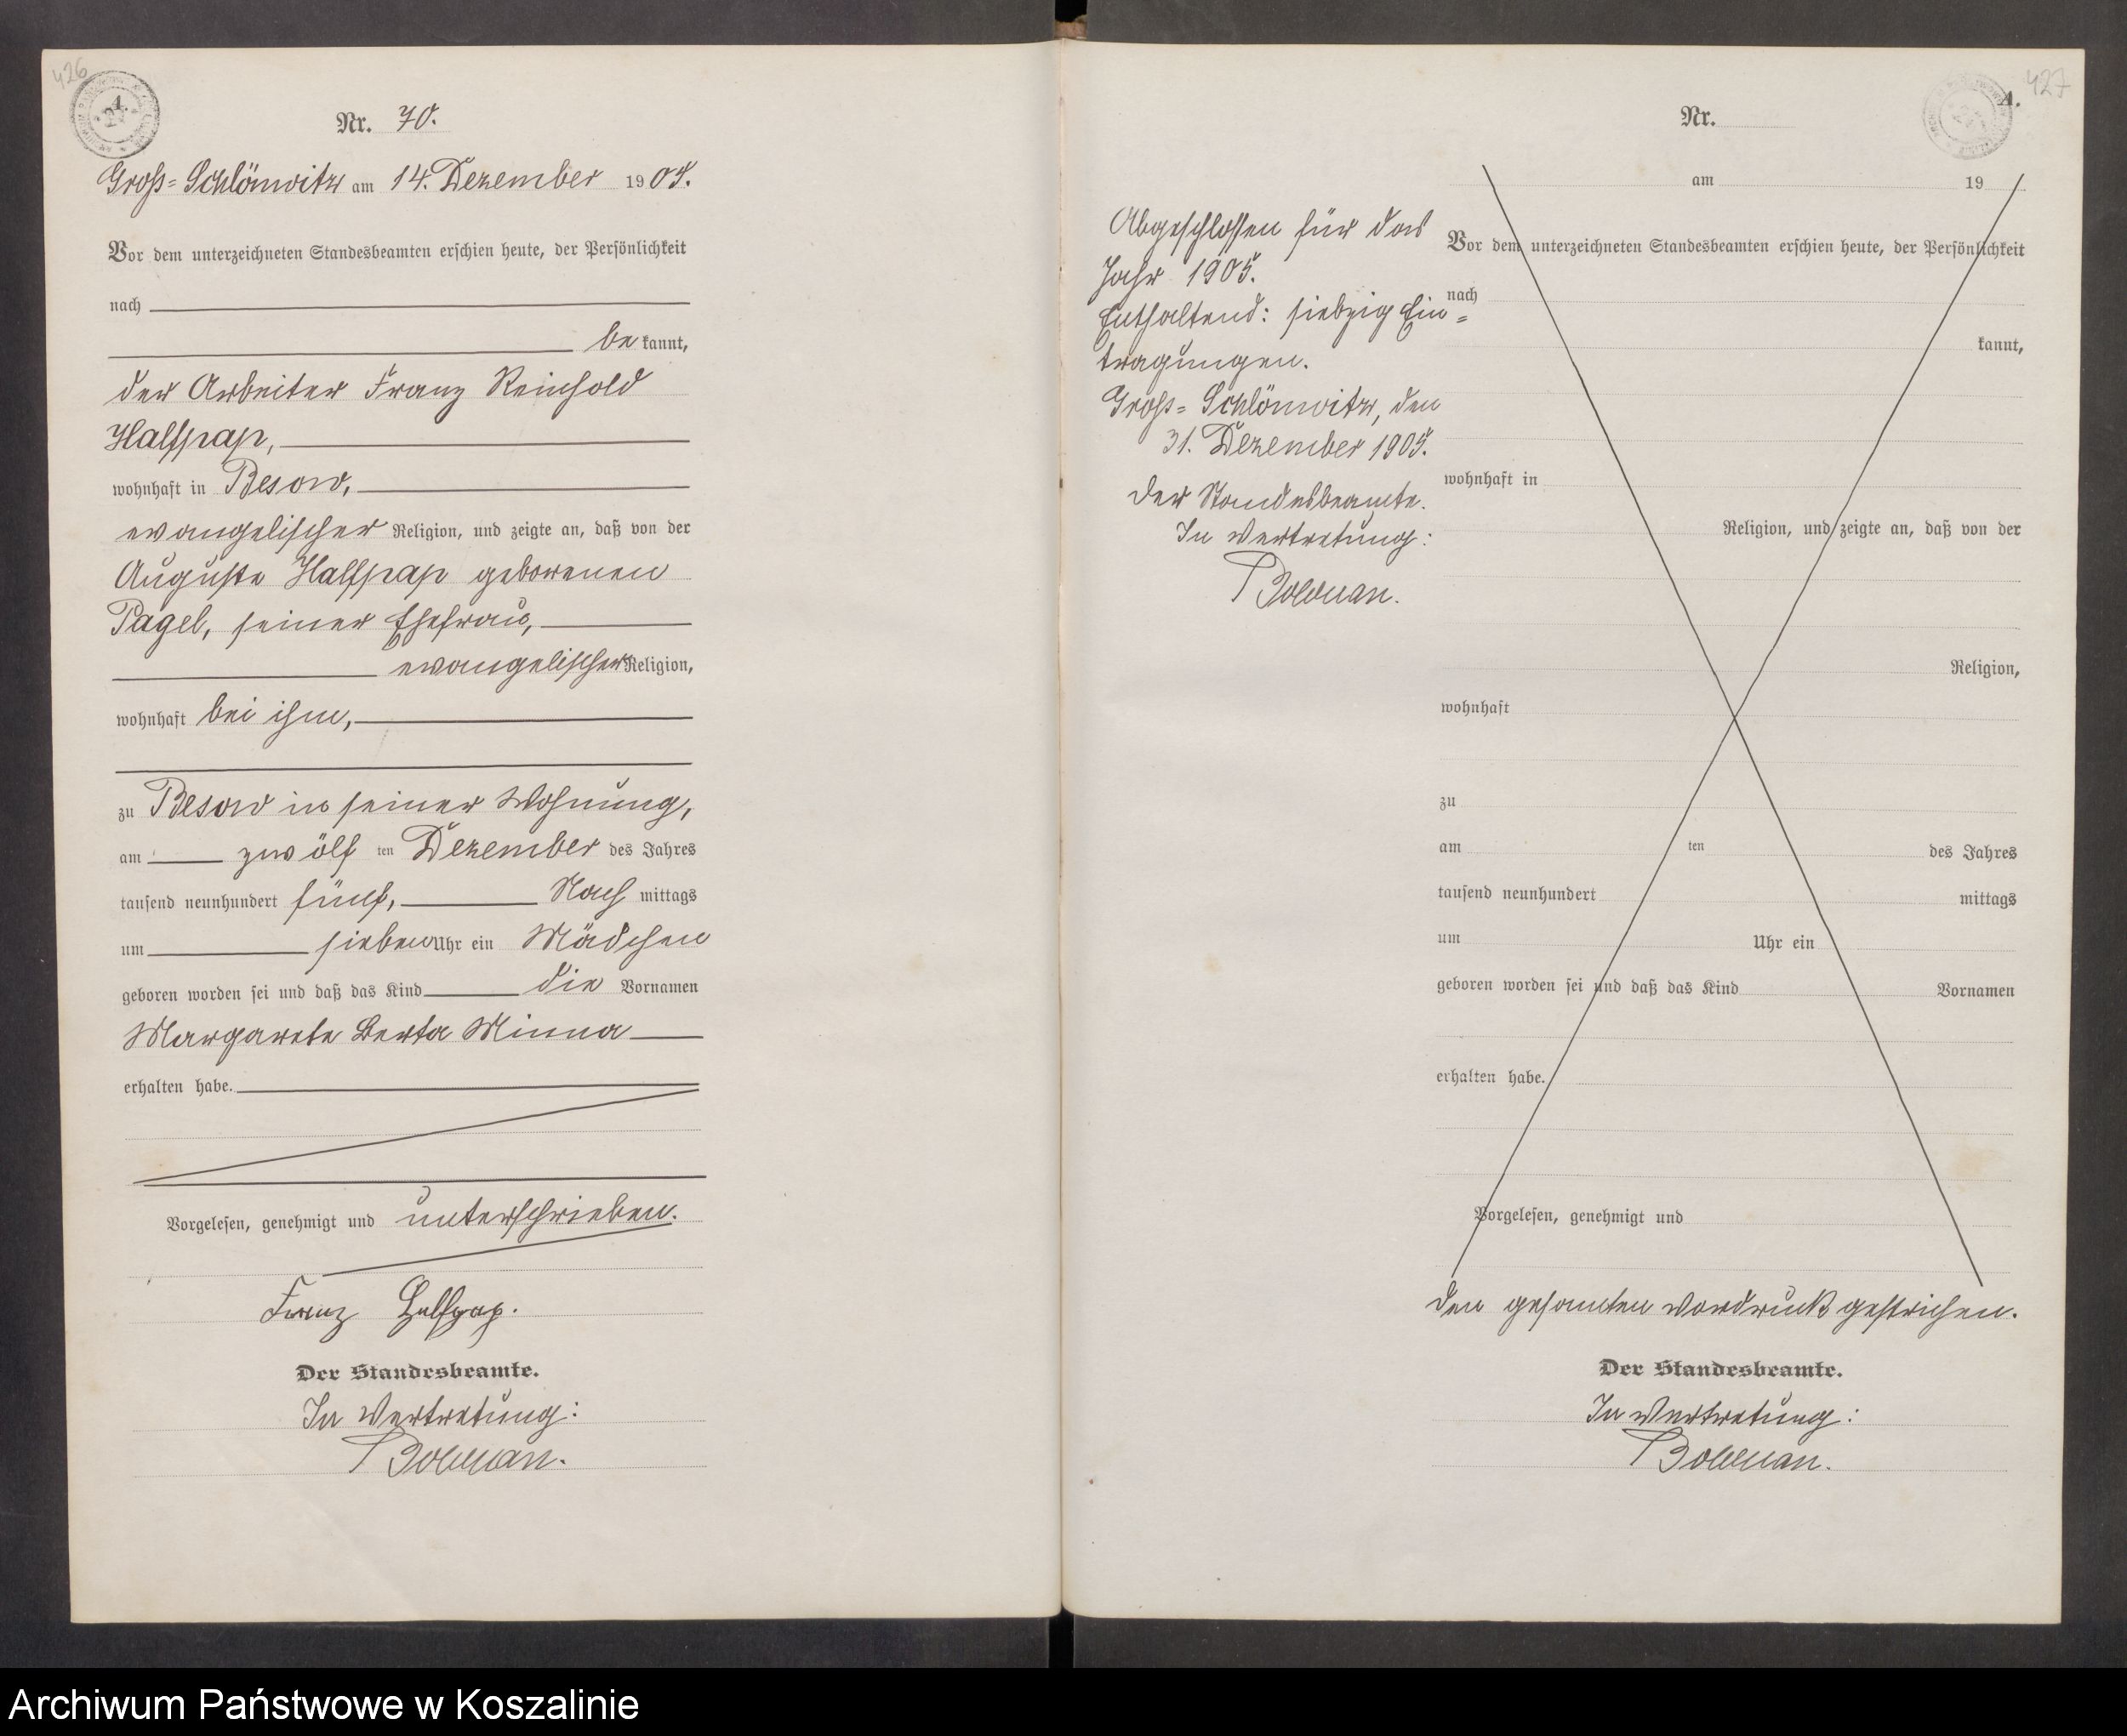 426
Nr. 70.
Groß=Schlönwitz am 14. Dezember 1905.
Vor dem unterzeichneten Standesbeamten erschien heute, der Persönlichkeit
nach
be kannt,
der Arbeiter Franz Reinhold
Halfpap,
wohnhaft in Besow,
evangelischer Religion, und zeigte an, daß von der
Auguste Halfpap geborenen
Pagel, seiner Ehefrau,
evangelischer Religion,
wohnhaft bei ihm,
zu Besow in seiner Wohnung,
am zwölf ten Dezember des Jahres
tausend neunhundert fünf, Nach mittags
um sieben Uhr ein Mädchen
geboren worden sei und daß das Kind die Vornamen
Margarete Berta Minna
erhalten habe.
Vorgelesen, genehmigt und unterschrieben.
Franz Halfpap.
Der Standesbeamte.
In Vertretung:
Bolduan.
427
A.
Abgeschlossen für das
Jahr 1905.
Enthaltend: siebzig Ein=
tragungen.
Groß=Schlönwitz, den
31. Dezember 1905.
Der Standesbeamte.
In Vertretung:
Bolduan.
Nr.
am 19
Vor dem unterzeichneten Standesbeamten erschien heute, der Persönlichkeit
nach
kannt,
wohnhaft in
Religion, und zeigte an, daß von der
Religion,
wohnhaft
zu
am ten des Jahres
tausend neunhundert mittags
um Uhr ein
geboren worden sei und daß das Kind Vornamen
erhalten habe.
Vorgelesen, genehmigt und
Den gesamten Vordruck gestrichen.
Der Standesbeamte.
In Vertretung:
Bolduan.
Archiwum Państwowe w Koszalinie